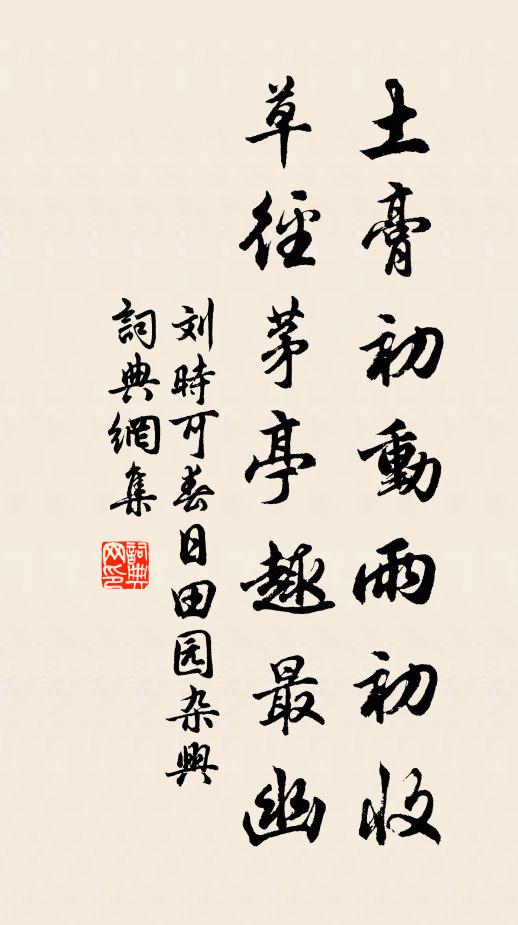 土膏初動雨初收
草徑茅亭趣最幽
刘時可春日田园杂興
詞典網集
詞典网印